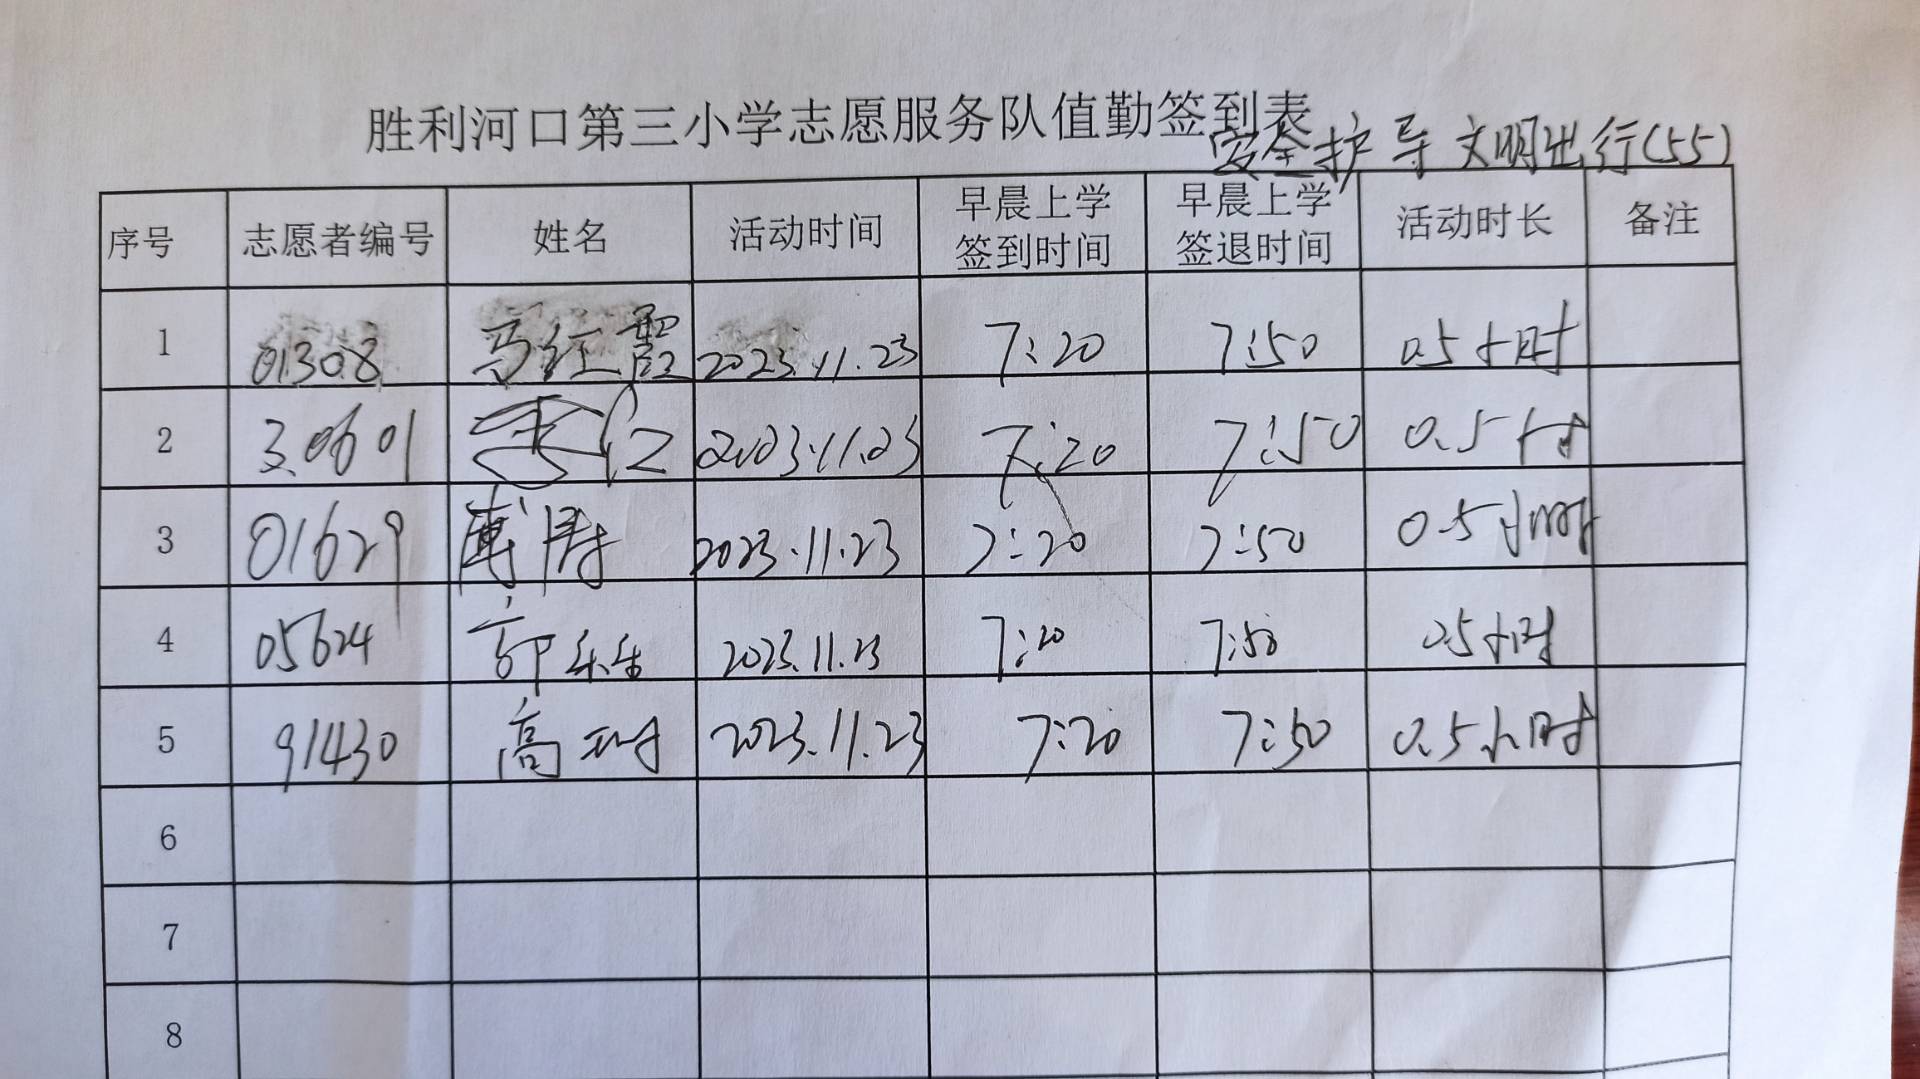 胜利河口第三小学志愿服务队值勤签到表
安全护导 文明出行(55)
序号 志愿者编号 姓名 活动时间 早晨上学签到时间 早晨上学签退时间 活动时长 备注
1 01308 马红霞 2023.11.23 7:20 7:50 0.5小时
2 30601 李红 2023.11.23 7:20 7:50 0.5小时
3 01629 2023.11.23 7:20 7:50 0.5小时
4 05624 2023.11.23 7:20 7:50 0.5小时
5 91430 高 2023.11.23 7:20 7:50 0.5小时
6
7
8